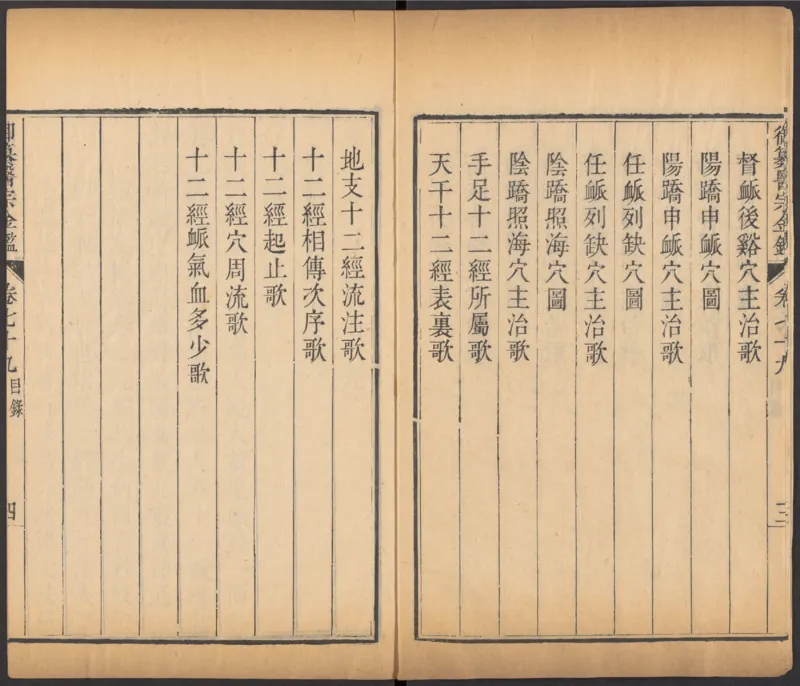 御纂醫宗金鑑 卷七十九 三
督衇後谿穴主治歌
陽蹻申衇穴圖
陽蹻申衇穴主治歌
任衇列缺穴圖
任衇列缺穴主治歌
陰蹻照海穴圖
陰蹻照海穴主治歌
手足十二經所屬歌
天干十二經表裏歌
地支十二經流注歌
十二經相傳次序歌
十二經起止歌
十二經穴周流歌
十二經衇氣血多少歌
御纂醫宗金鑑 卷七十九 目錄 四